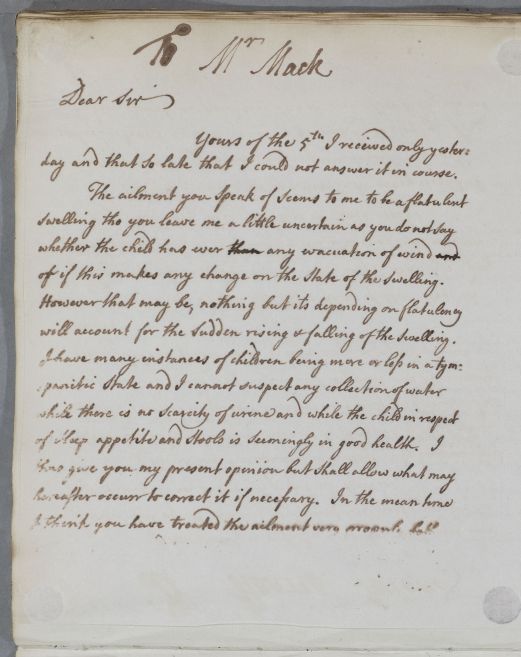 To Mr Mack
Dear Sir
Yours of the 5th I received only yester:
day and that so late that I could not answer it in course.
The ailment you speak of seems to me to be a flatulent
swelling tho you leave me a little uncertain as you do not say
whether the child has ever than any evacuation of wind and
of if this makes any change on the state of the swelling.
However that may be, nothing but its depending on flatulency
will account for the sudden rising & falling of the swelling.
I have many instances of children being more or less in a tym:
panitic state and I cannot suspect any collection of water
while there is no scarcity of urine and while the child in respect
of sleep appetite and stools is seemingly in good health. I
thus give you my present opinion but shall allow what may
hereafter occurr to correct it if necessary. In the mean time
I think you have treated the ailment very